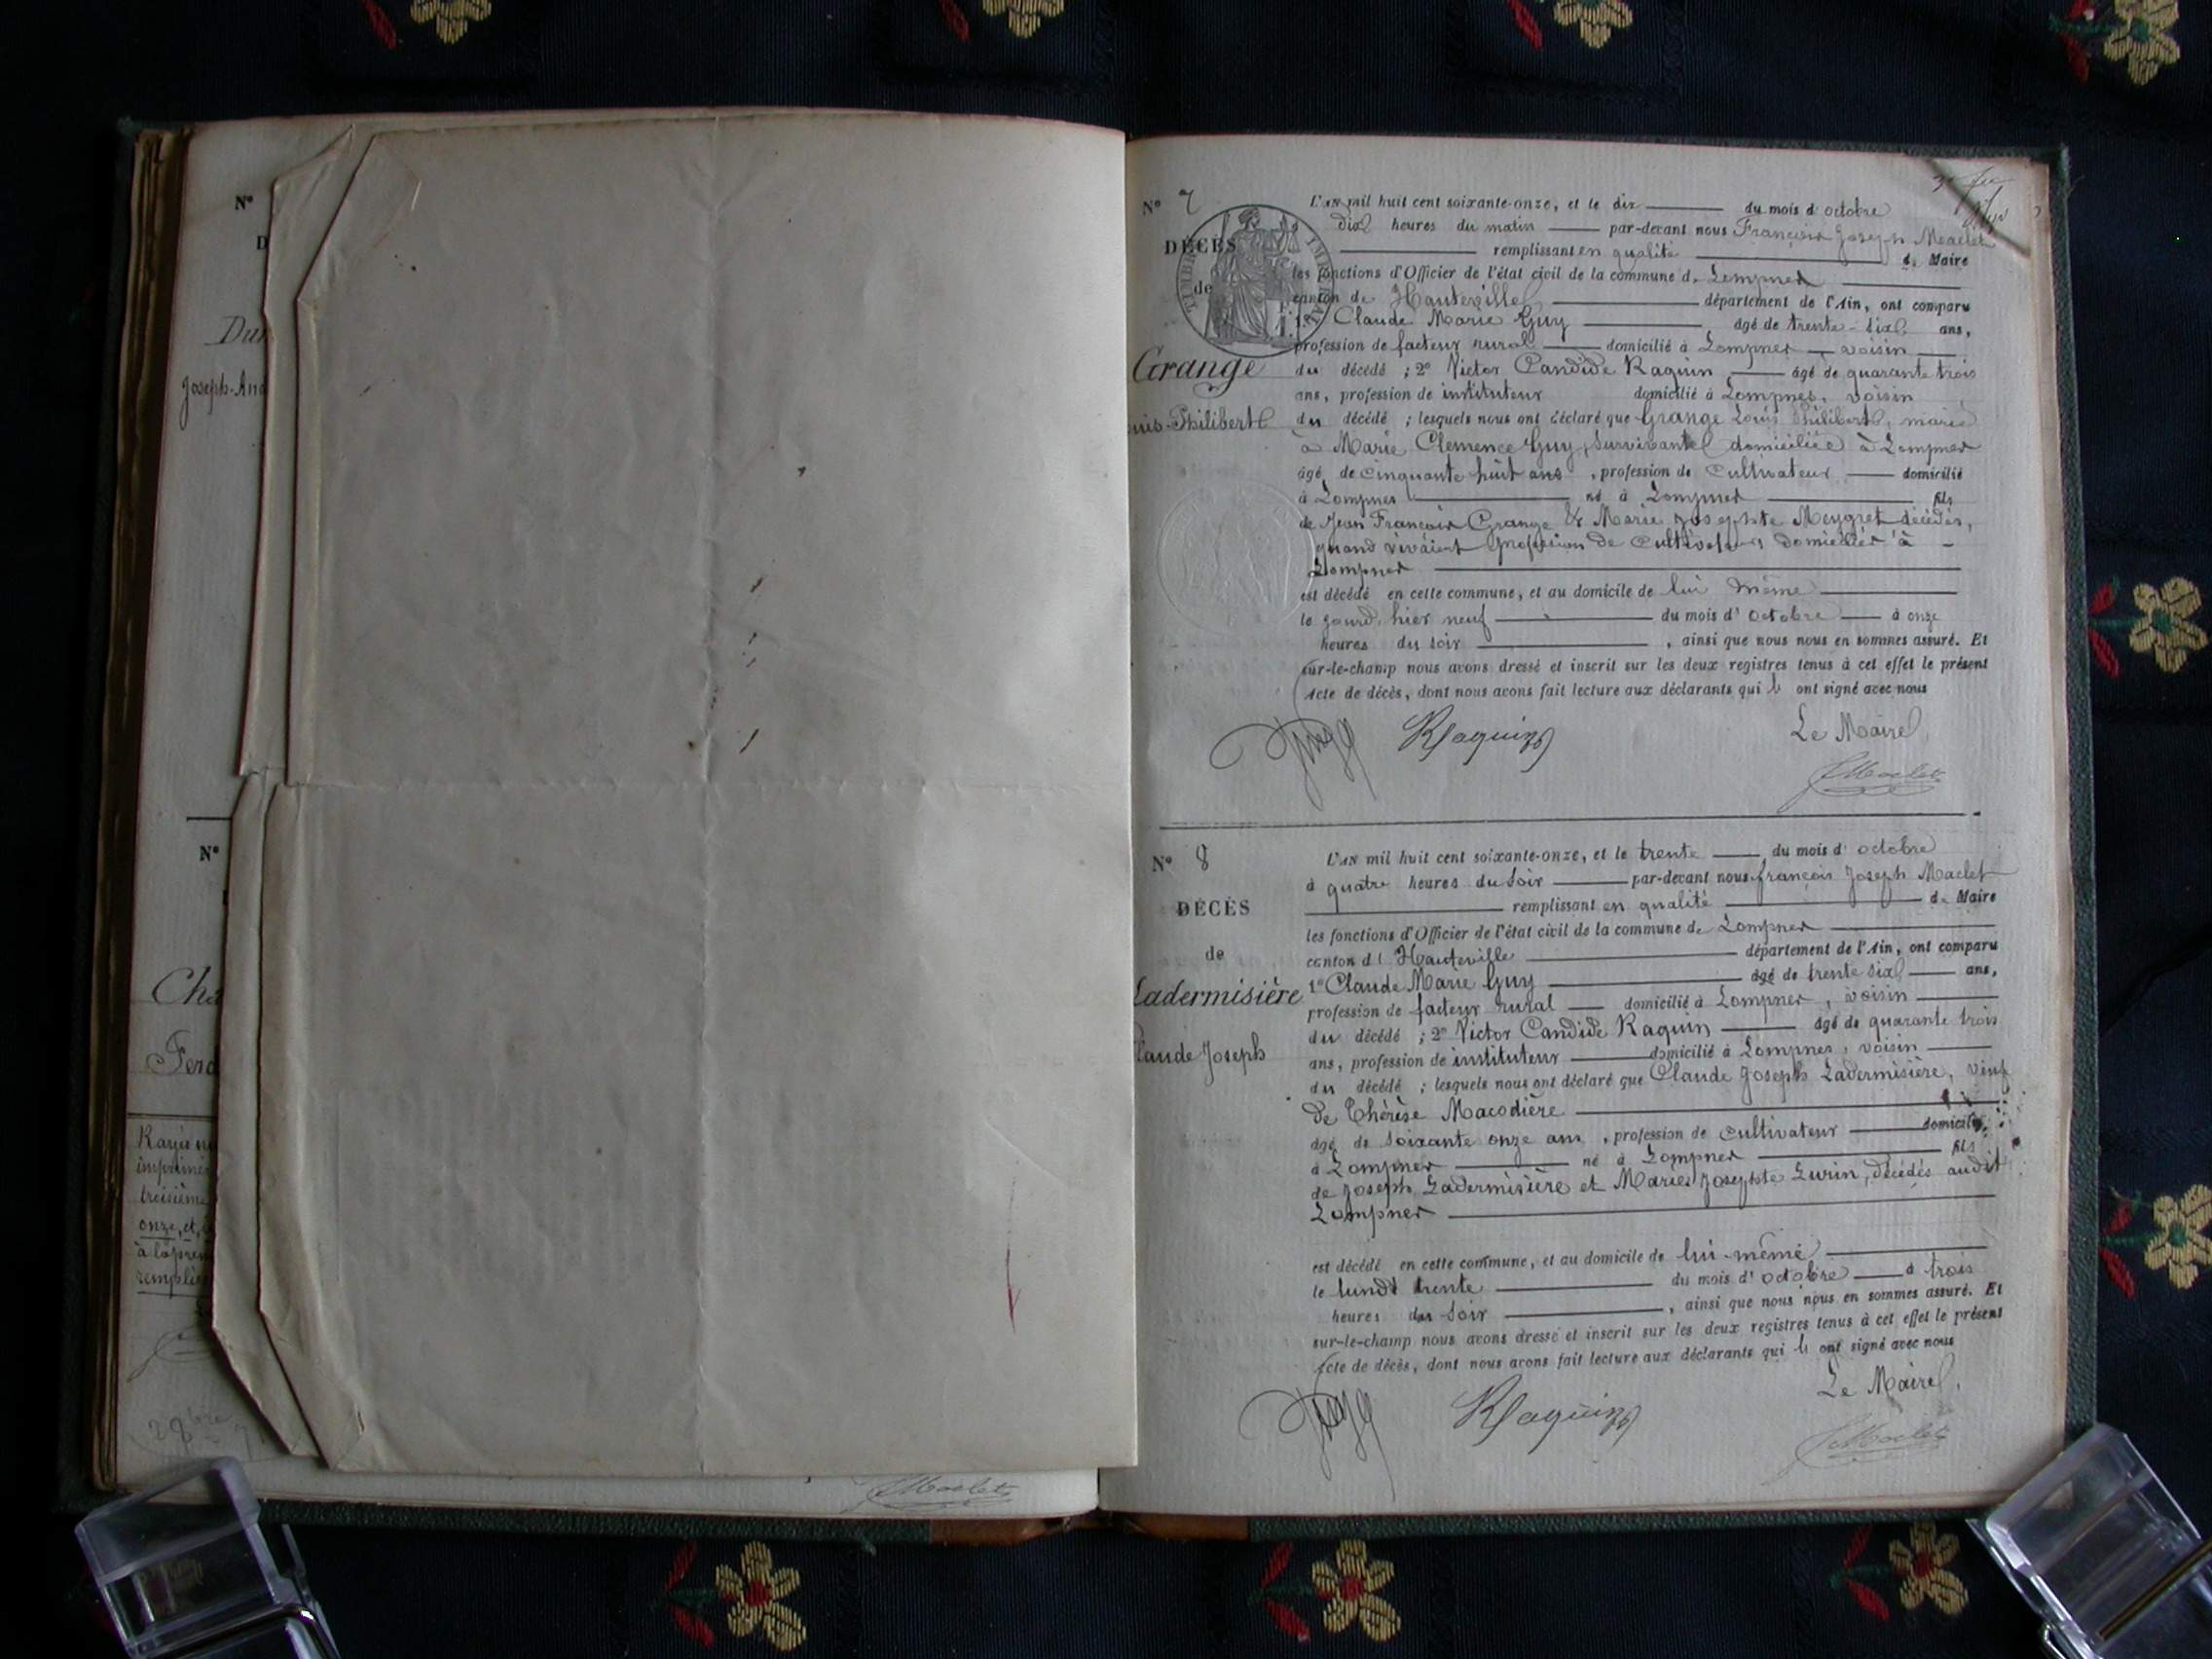 N°
D
Dur
Joseph-And
N°
Cha
Ferd
Rayés
imprimés
troisième
onze, et,
à l'apre
remplie
FMaclet
N° 7
DÉCÈS
de
TIMBRE IMPÉRIAL
Grange
ouis-Philibert
L'AN mil huit cent soixante-onze, et le dix du mois d'octobre
dix heures du matin par-devant nous François Joseph Maclet
remplissant en qualité de Maire
les fonctions d'Officier de l'état civil de la commune de Lompnes
canton de Hauteville département de l'Ain, ont comparu
1° Claude Marie Guy âgé de trente-six ans,
profession de facteur rural domicilié à Lompnes voisin
du décédé ; 2° Victor Candide Raquin âgé de quarante trois
ans, profession de instituteur domicilié à Lompnes, voisin
du décédé ; lesquels nous ont déclaré que Grange Louis Philibert, marié
à Marie Clémence Guy, survivante domiciliée à Lompnes
âgé de cinquante huit ans , profession de cultivateur domicilié
à Lompnes né à Lompnes fils
de Jean François Grange & Marie Josephte Meygret décédés,
quand vivaient profession de cultivateurs domiciliés à
Lompnes
est décédé en cette commune, et au domicile de lui même
le jourd'hier neuf du mois d'octobre à onze
heures du soir , ainsi que nous nous en sommes assuré. Et
sur-le-champ nous avons dressé et inscrit sur les deux registres tenus à cet effet le présent
Acte de décès, dont nous avons fait lecture aux déclarants qui l' ont signé avec nous
Guy Raquin Le Maire
FMaclet
N° 8
DÉCÈS
de
Ladermisière
laude Joseph
L'AN mil huit cent soixante-onze, et le trente du mois d'octobre
à quatre heures du soir par-devant nous françois Joseph Maclet
remplissant en qualité de Maire
les fonctions d'Officier de l'état civil de la commune de Lompnes
canton d'Hauteville département de l'Ain, ont comparu
1° Claude Marie Guy âgé de trente six ans,
profession de facteur rural domicilié à Lompnes, voisin
du décédé ; 2° Victor Candide Raquin âgé de quarante trois
ans, profession de instituteur domicilié à Lompnes, voisin
du décédé ; lesquels nous ont déclaré que Claude Joseph Ladermisière, veuf
de Thérèse Macodière
âgé de soixante onze ans , profession de cultivateur domicilié
à Lompnes né à Lompnes fils
de Joseph Ladermisière et Marie Josephte Lurin, décédés audit
Lompnes
est décédé en cette commune, et au domicile de lui-même
le lundi trente du mois d'octobre à trois
heures du soir , ainsi que nous nous en sommes assuré. Et
sur-le-champ nous avons dressé et inscrit sur les deux registres tenus à cet effet le présent
Acte de décès, dont nous avons fait lecture aux déclarants qui l' ont signé avec nous
Guy Raquin Le Maire,
FMaclet